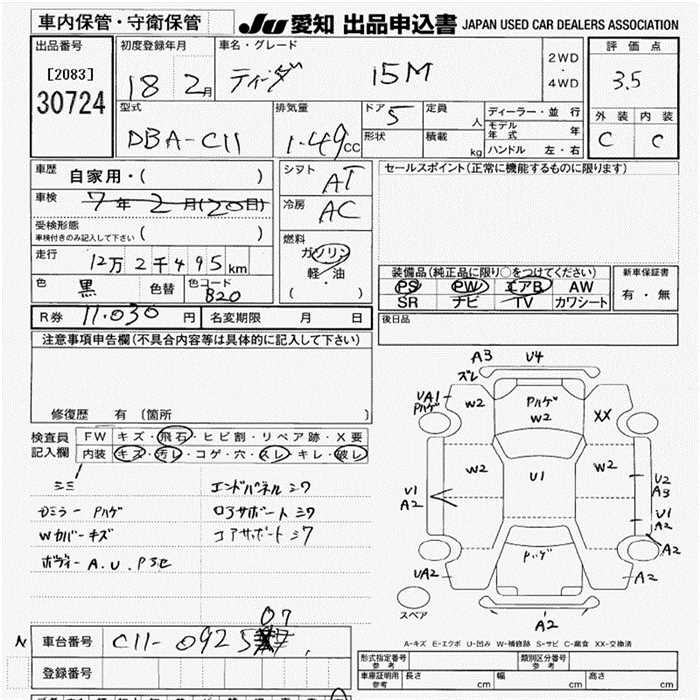 車内保管・守衛保管
JU 愛知 出品申込書 JAPAN USED CAR DEALERS ASSOCIATION
出品番号
[2083]
30724
初度登録年月
18 2月
車名・グレード
ティーダ 15M
2WD
・
4WD
評価点
3.5
外装 内装
C C
型式
DBA-C11
排気量
1.49cc
ドア 5
形状
定員 人
積載 kg
ディーラー・並行
モデル年式 年
ハンドル 左・右
車歴 自家用・( )
車検 7年2月(20日)
受検形態
車検付きのみ記入して下さい ( )
走行 12万2千495km
色 黒 色替 色コード B20
シフト AT
冷房 AC
燃料
ガソリン
軽・油
( )
セールスポイント(正常に機能するものに限ります)
装備品(純正品に限り○をつけてください)
PS PW エアB AW
SR ナビ TV カワシート
新車保証書
有・無
後日品
R券 11.030 円 名変期限 月 日
注意事項申告欄(不具合内容等は具体的に記入して下さい)
修復歴 有 〔箇所 〕
検査員
記入欄
FW キズ・飛石・ヒビ割・リペア跡・X要
内装 キズ・汚レ・コゲ・穴・スレ・キレ・破レ
シミ
Dミラー Pハゲ
Wカバーキズ
ボディー A.U.P
エンドパネルシワ
コアサポートシワ
コアサポートシワ
A3 U4
ズレ
UA1
Pハゲ
W2
Pハゲ
W2
XX
W2
U1
W2
U1
A2
U2
A3
U1
A2
A2
Pハゲ
UA2
A2
A2
スペア
A-キズ E-エクボ U-凹み W-補修跡 S-サビ C-腐食 XX-交換済
N
車台番号 C11-0925
07
登録番号
形式指定番号
参考
類別区分番号
参考
車庫証明用
参考
長さ cm 幅 cm 高さ cm